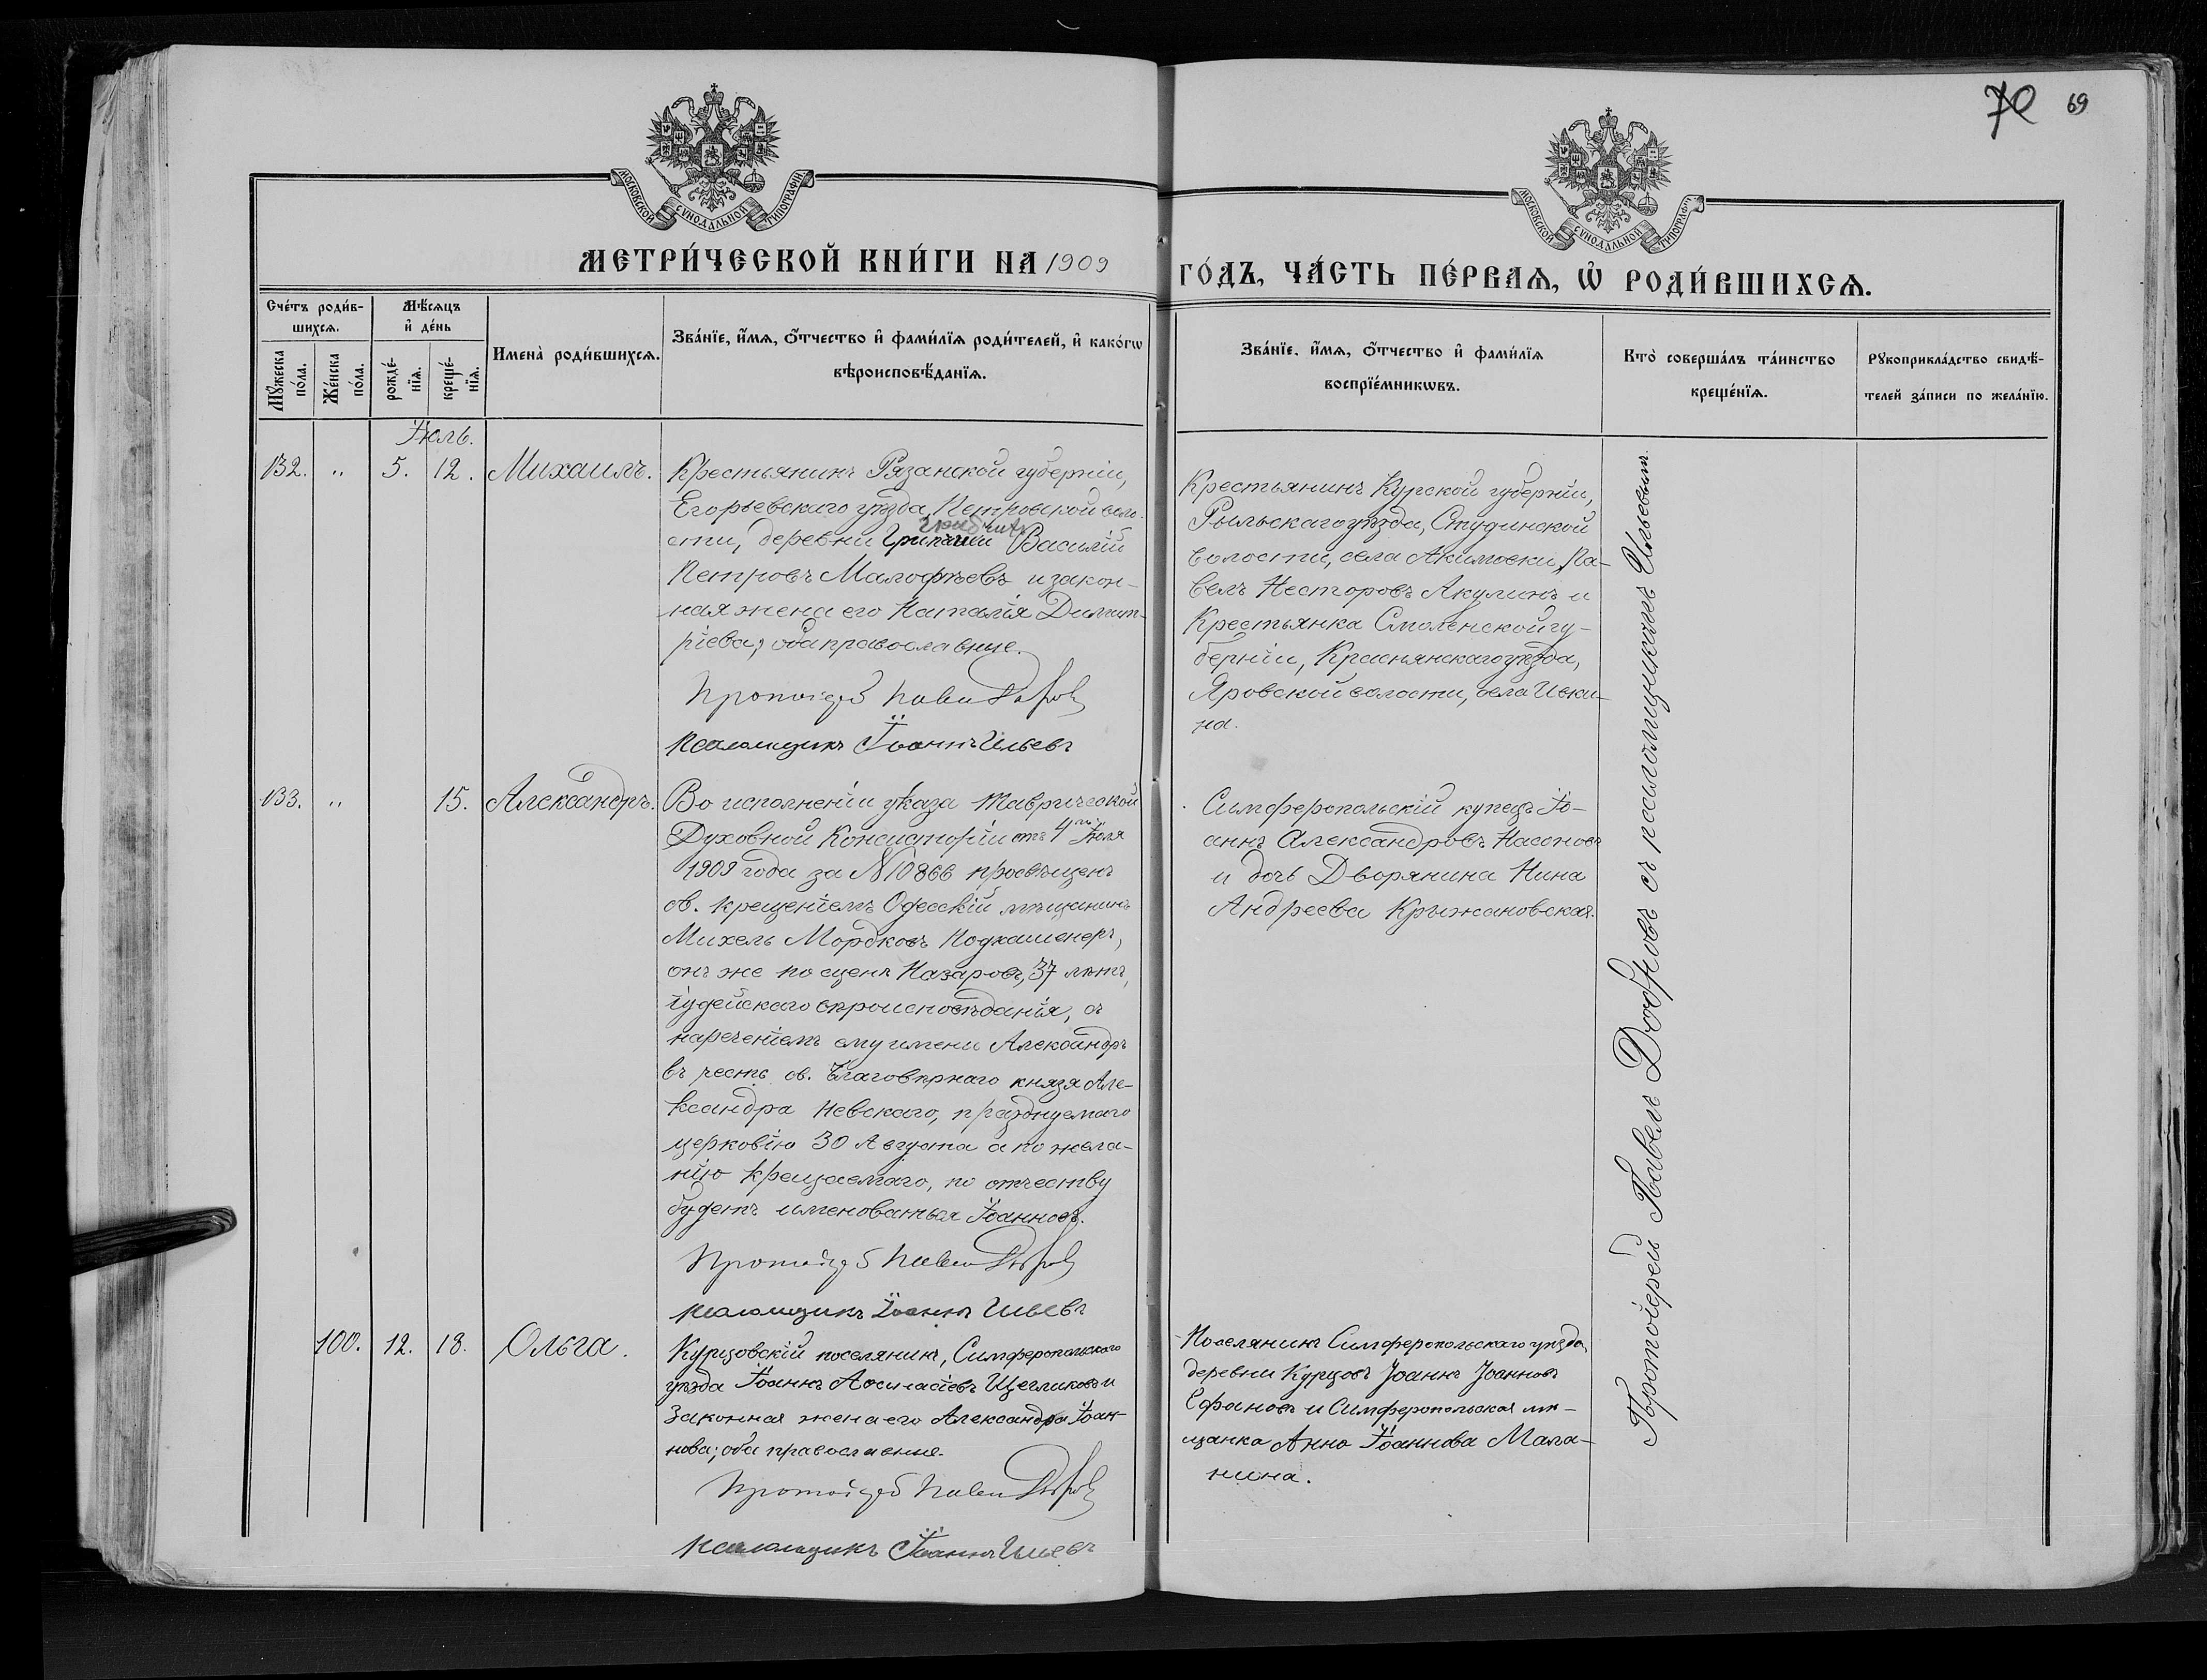 70 69
МОСКОВСКОЙ СѴНОДАЛЬНОЙ ТИПОГРАФІИ
МОСКОВСКОЙ СѴНОДАЛЬНОЙ ТИПОГРАФІИ
МЕТРИ́ЧЕСКОЙ КНИ́ГИ НА 1909
ГО́ДЪ, ЧА́СТЬ ПЕ́РВАѦ, Ѡ҆ РОДИ́ВШИХСѦ.
Сче́тъ роди́в-
шихсѧ.
Мꙋ́жеска
по́ла.
Же́нска
по́ла.
Мѣ́сѧцъ
и҆ де́нь
рожде́-
нїѧ.
креще́-
нїѧ.
Имена̀ роди́вшихсѧ.
Зва́нїе, и҆́мѧ, ѻ҆́тчество и҆ фами́лїѧ роди́телей, и҆ како́гѡ
вѣроисповѣ́данїѧ.
Зва́нїе, и҆́мѧ, ѻ҆́тчество и҆ фами́лїѧ
воспрїе́мникѡвъ.
Кто̀ соверша́лъ та́инство
креще́нїѧ.
Рꙋкоприкла́дство свидѣ́-
телей за́писи по жела́нїю.
Іюль.
132. „ 5. 12. Михаилъ.
Крестьянинъ Рязанской губерніи,
Егорьевскаго уѣзда, Петровской воло-
сти, деревни Василій
Петровъ Малофѣевъ и закон-
ная жена его Наталія Димит-
ріева; оба православные.
Протоіерей Павелъ Добровъ
Псаломщикъ Іоаннъ Ильевъ
Крестьянинъ Курской губерніи,
Рыльскаго уѣзда, Студинской
волости, села Акимовки, Па-
велъ Несторовъ Акулинъ и
Крестьянка Смоленской гу-
берніи, Краснянскаго уѣзда,
Яровской волости, села Ивки-
на.
133. „ 15. Александръ.
Во исполненіи указа Таврической
Духовной Консисторіи отъ 4го Іюля
1909 года за № 10866 просвѣщенъ
св. крещеніемъ Одесскій мѣщанинъ
Михель Мордковъ Подкаменеръ,
онъ же по сценѣ Назаровъ, 37 лѣтъ,
іудейскаго вѣроисповѣданія, съ
нареченіемъ ему имени Александръ
въ честь св. Благовѣрнаго князя Але-
ксандра Невскаго, празднуемаго
церковію 30 Августа а по жела-
нію крещаемаго, по отчеству
будетъ именоваться Іоанновъ.
Протоіерей Павелъ Добровъ
Псаломщикъ Іоаннъ Ильевъ
Симферопольскій купецъ Іо-
аннъ Александровъ Насоновъ
и дочь Дворянина Нина
Андреева Крыжановская.
100. 12. 18. Ольга.
Курцовскій поселянинъ, Симферопольскаго
уѣзда Іоаннъ Щегликовъ и
Законная жена его Александра Іоан-
нова; оба православные.
Протоіерей Павелъ Добровъ
Псаломщикъ Іоаннъ Ильевъ
Поселянинъ Симферопольскаго уѣзда,
деревни Курцовъ Іоаннъ Іоанновъ
Сафановъ и Симферопольская мѣ-
щанка Анна Іоаннова Мала-
нина.
Протоіерей Павелъ Добровъ съ псаломщикомъ Ильевымъ.